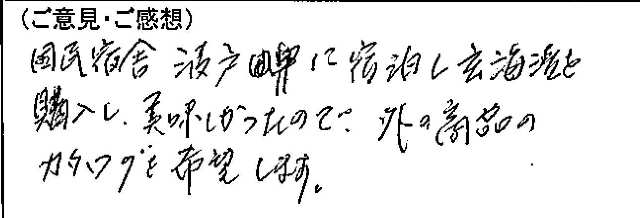 (ご意見・ご感想)
国民宿舎 波戸岬に宿泊し玄海漬を
購入し、美味しかったので、外の商品の
カタログを希望します。